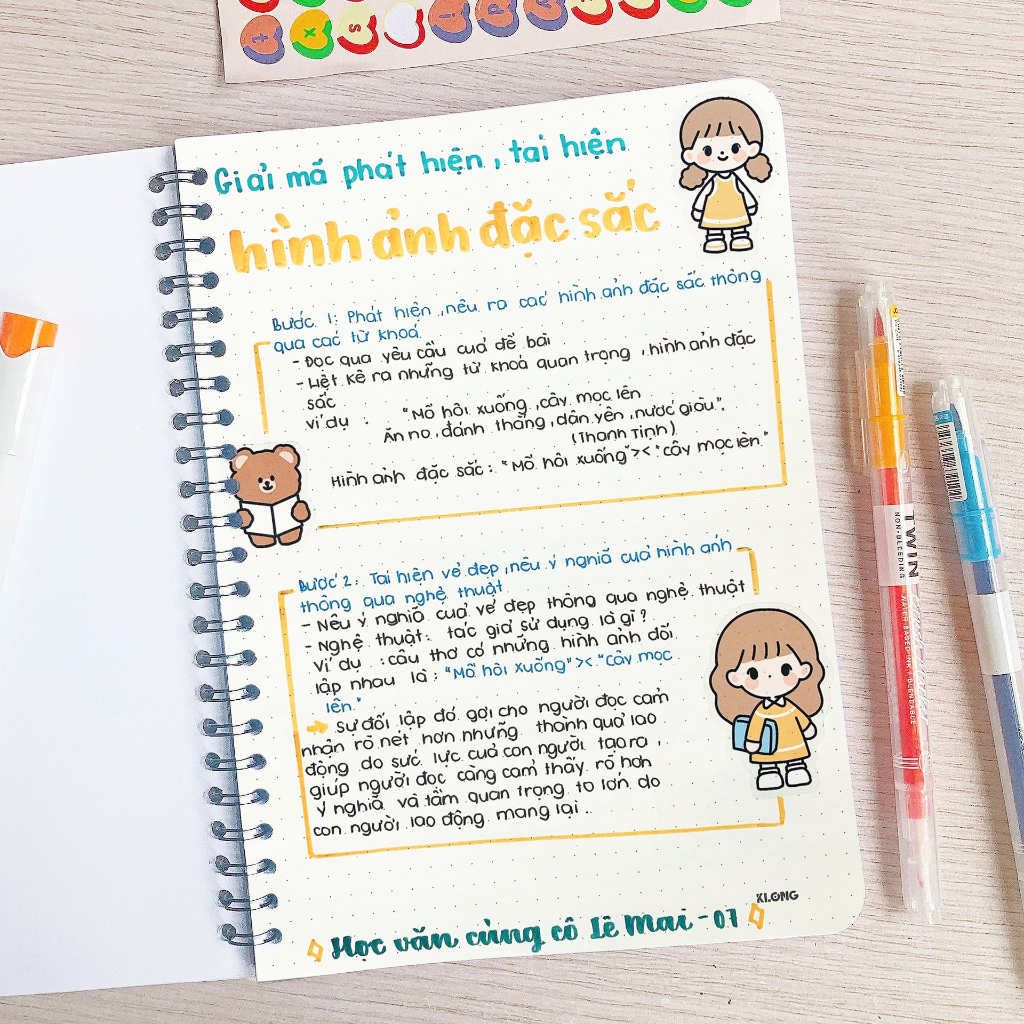 t x s i p u
Giải mã phát hiện, tái hiện
hình ảnh đặc sắc
Bước 1: Phát hiện, nêu ra các hình ảnh đặc sắc thông
qua các từ khoá
- Đọc qua yêu cầu của đề bài
- Liệt kê ra những từ khoá quan trọng, hình ảnh đặc
sắc
ví dụ : "Mồ hôi xuống, cây mọc lên
Ăn no, đánh thắng, dân yên, nước giàu".
(Thanh Tịnh)
Hình ảnh đặc sắc: "Mồ hôi xuống" >< "cây mọc lên"
Bước 2: Tái hiện vẻ đẹp, nêu ý nghĩa của hình ảnh
thông qua nghệ thuật
- Nêu ý nghĩa của vẻ đẹp thông qua nghệ thuật
- Nghệ thuật: tác giả sử dụng là gì?
Ví dụ : câu thơ có những hình ảnh đối
lập nhau là: "Mồ hôi xuống" >< "cây mọc
lên"
➔ Sự đối lập đó gợi cho người đọc cảm
nhận rõ nét hơn những thành quả lao
động do sức lực của con người tạo ra,
giúp người đọc càng cảm thấy rõ hơn
ý nghĩa và tầm quan trọng to lớn do
con người lao động mang lại.
KLONG
Học văn cùng cô Lê Mai - 07
TWIN
NON-BLEEDING
WATER-BASED INK / BLENDABLE